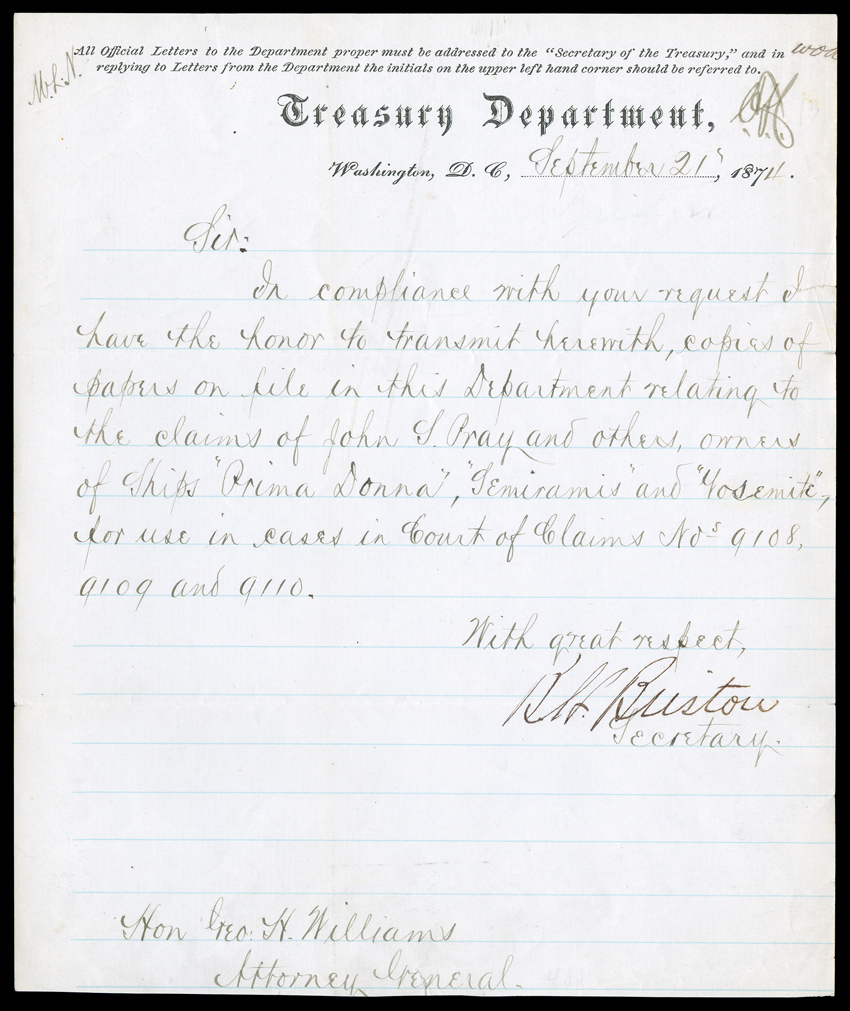 All Official Letters to the Department proper must be addressed to the "Secretary of the Treasury," and in
replying to Letters from the Department the initials on the upper left hand corner should be referred to.
M.L.N.
Treasury Department,
Washington, D. C., September 21st, 1874.
Sir:
In compliance with your request I
have the honor to transmit herewith, copies of
papers on file in this Department relating to
the claims of John S. Pray and others, owners
of Ships "Prima Donna", "Semiramis" and "Yosemite",
for use in cases in Court of Claims Nos 9108,
9109 and 9110.
With great respect,
B.H. Bristow
Secretary.
Hon Geo. H. Williams
Attorney General.